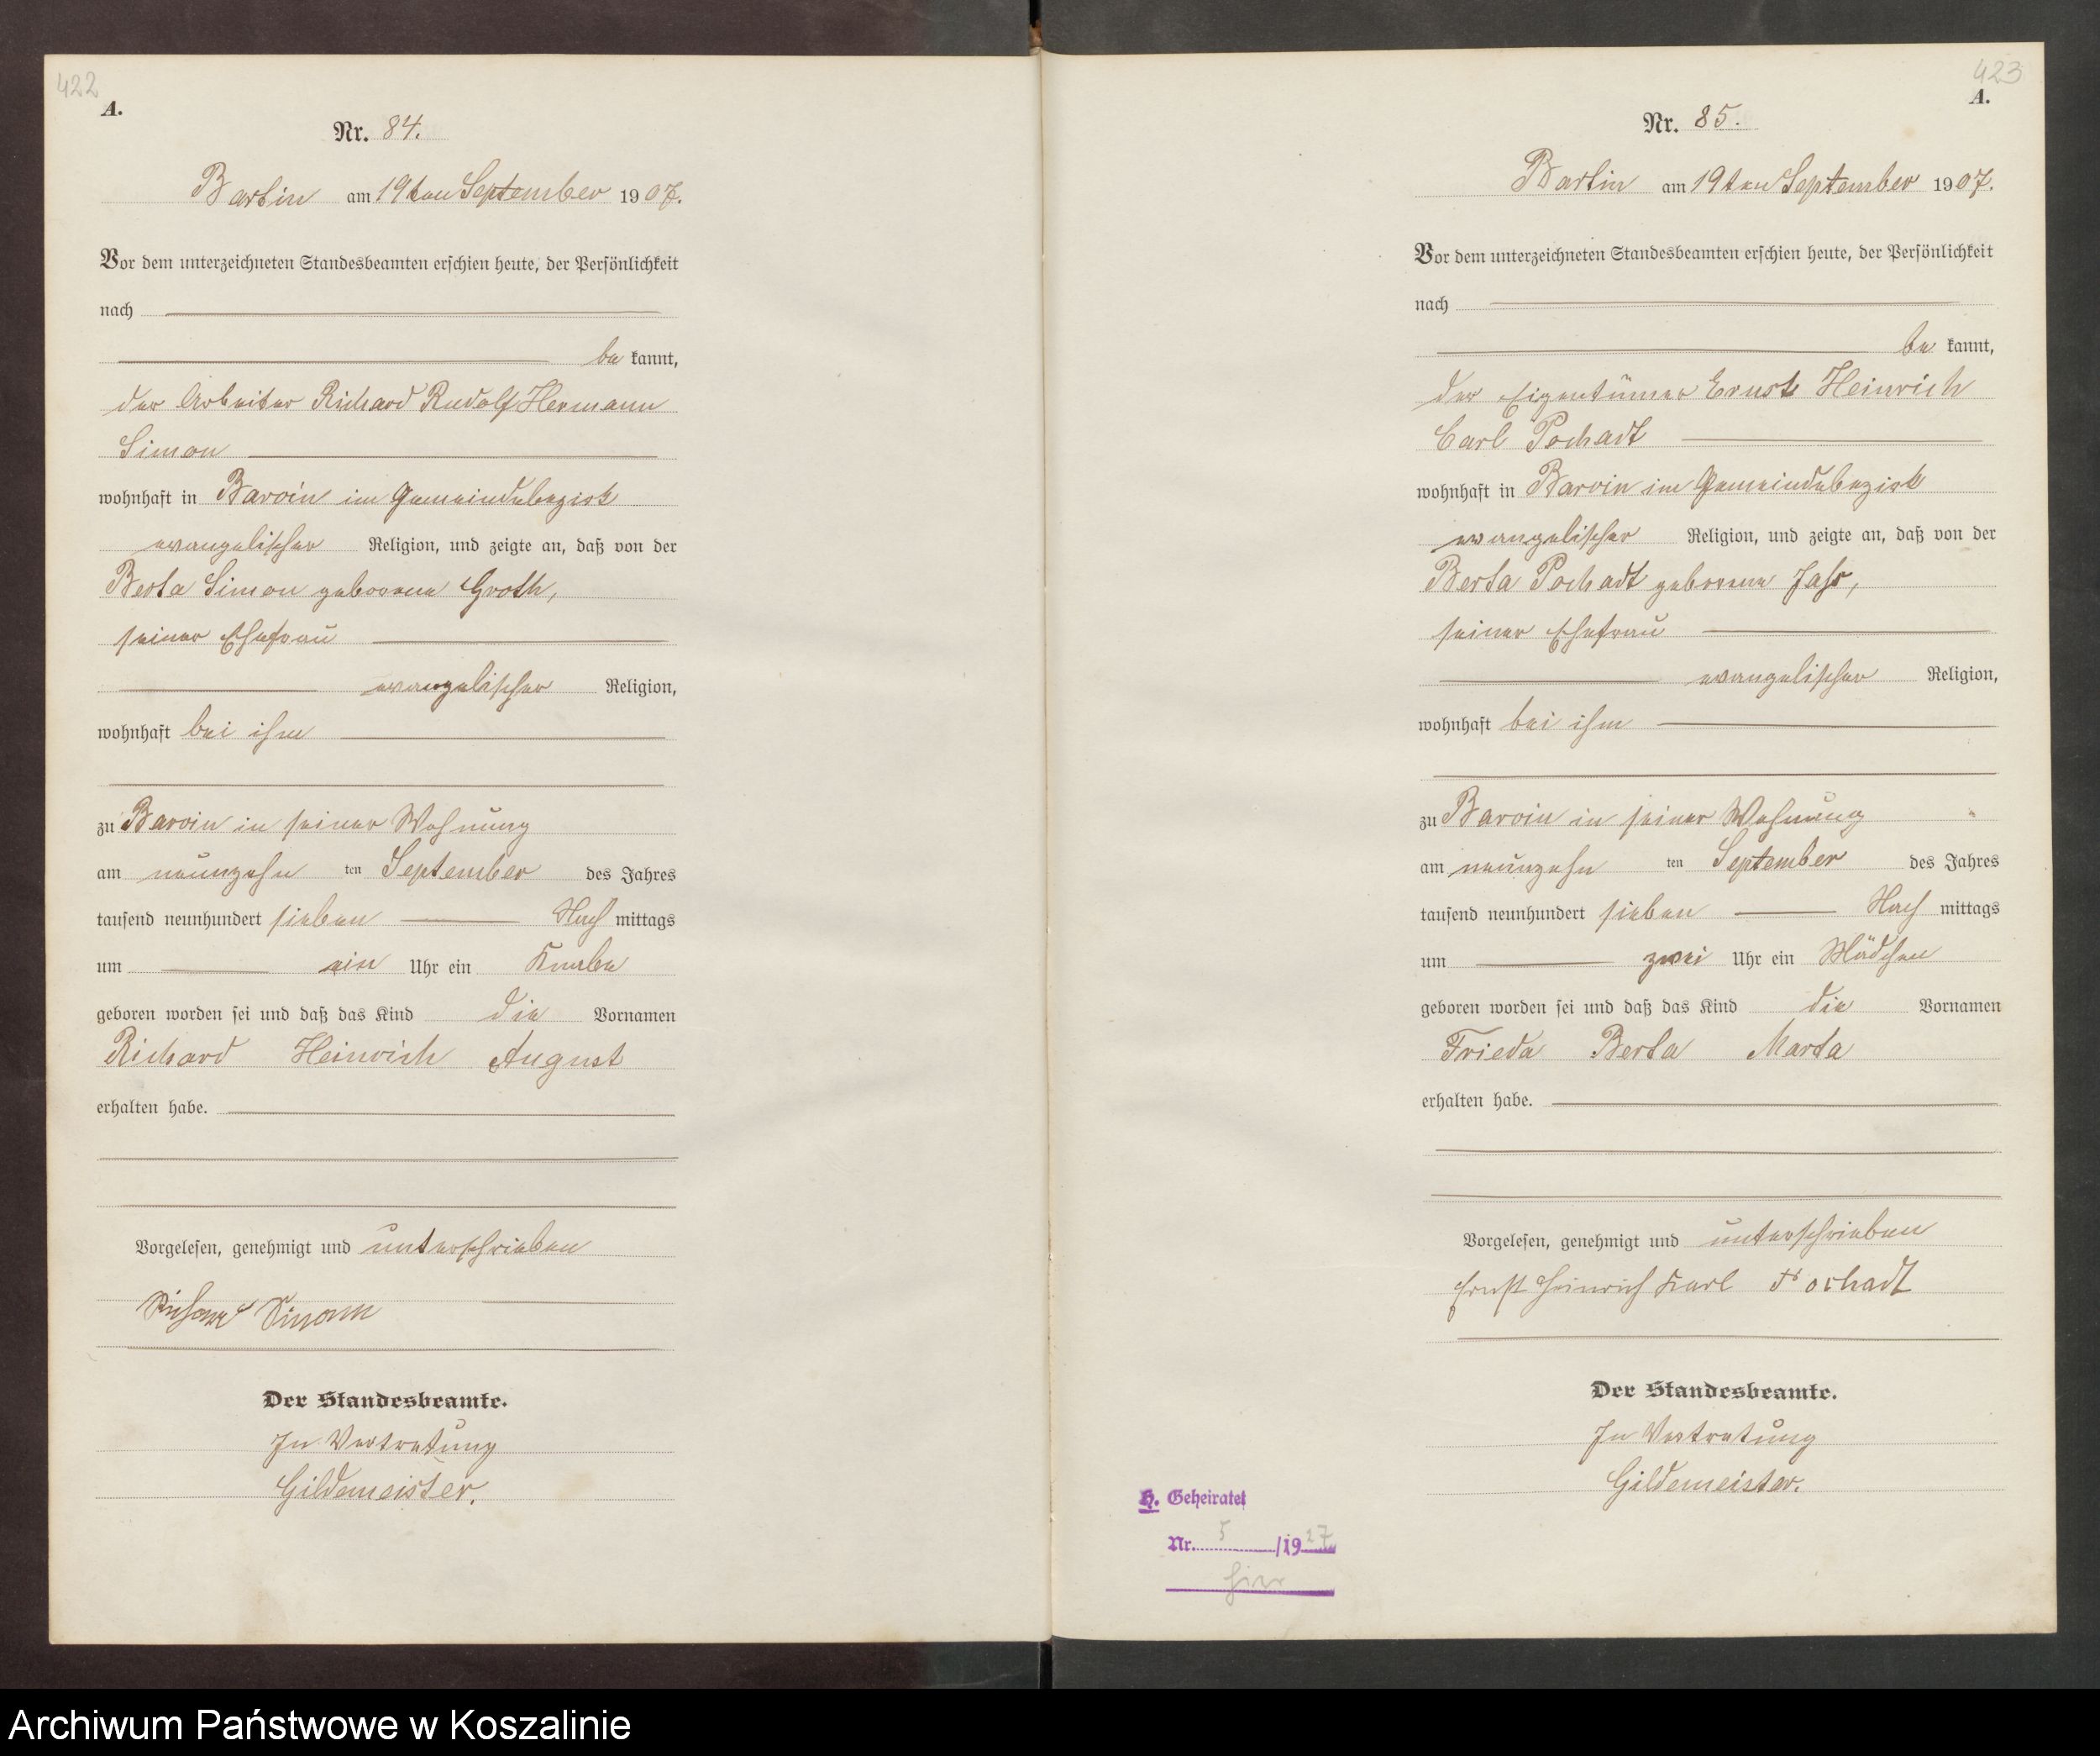 422
A.
Nr. 84.
Bartin am 19ten September 1907.
Vor dem unterzeichneten Standesbeamten erschien heute, der Persönlichkeit
nach
be kannt,
der Arbeiter Richard Rudolf Hermann
Simon
wohnhaft in Barvin im Gemeindebezirk
evangelischer Religion, und zeigte an, daß von der
Berta Simon geborene Groth,
seiner Ehefrau
evangelischer Religion,
wohnhaft bei ihm
zu Barvin in seiner Wohnung
am neunzehn ten September des Jahres
tausend neunhundert sieben Nach mittags
um ein Uhr ein Knabe
geboren worden sei und daß das Kind die Vornamen
Richard Heinrich August
erhalten habe.
Vorgelesen, genehmigt und unterschrieben
Richard Simon
Der Standesbeamte.
In Vertretung
Gildemeister.
423
A.
Nr. 85.
Bartin am 19ten September 1907.
Vor dem unterzeichneten Standesbeamten erschien heute, der Persönlichkeit
nach
be kannt,
der Eigentümer Ernst Heinrich
Carl Pochadt
wohnhaft in Barvin im Gemeindebezirk
evangelischer Religion, und zeigte an, daß von der
Berta Pochadt geborene Jahr,
seiner Ehefrau
evangelischer Religion,
wohnhaft bei ihm
zu Barvin in seiner Wohnung
am neunzehn ten September des Jahres
tausend neunhundert sieben Nach mittags
um zwei Uhr ein Mädchen
geboren worden sei und daß das Kind die Vornamen
Frieda Berta Marta
erhalten habe.
Vorgelesen, genehmigt und unterschrieben
Ernst Heinrich Karl Pochadt
Der Standesbeamte.
In Vertretung
Gildemeister.
H. Geheiratet
Nr. 5 /1927
hier
Archiwum Państwowe w Koszalinie